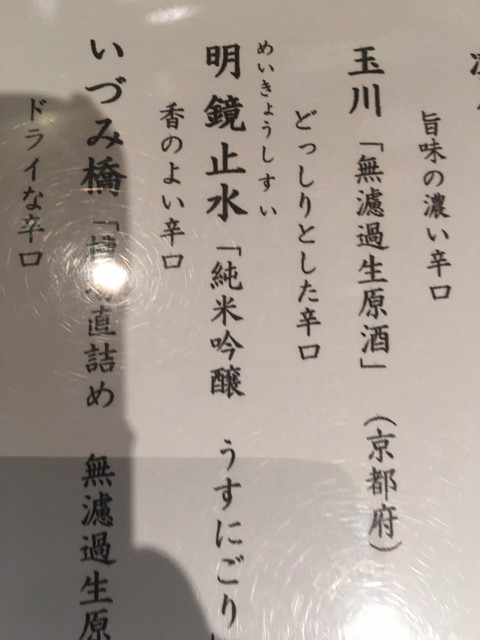 旨味の濃い辛口
玉川「無濾過生原酒」（京都府）
どっしりとした辛口
めいきょうしすい
明鏡止水「純米吟醸 うすにごり
香のよい辛口
いづみ橋「 直詰め 無濾過生原
ドライな辛口